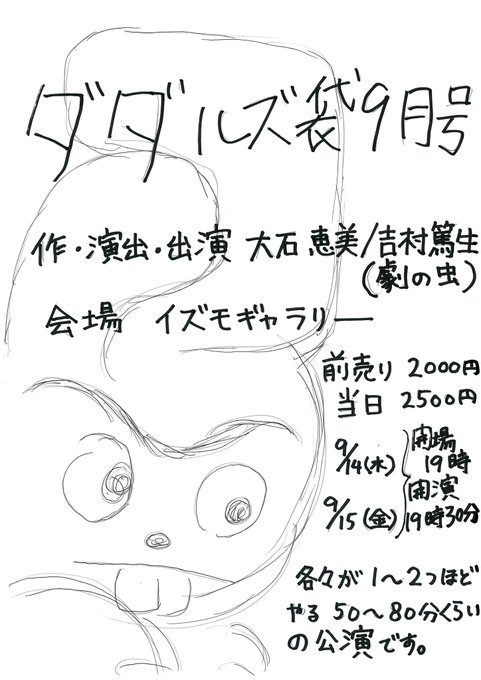 ダダルズ袋9月号
作・演出・出演 大石恵美/吉村篤生
(劇の虫)
会場 イズモギャラリー
前売り 2000円
当日 2500円
9/14(木) 開場
19時
9/15(金) 開演
19時30分
各々が1〜2つほど
やる 50〜80分くらい
の公演です。